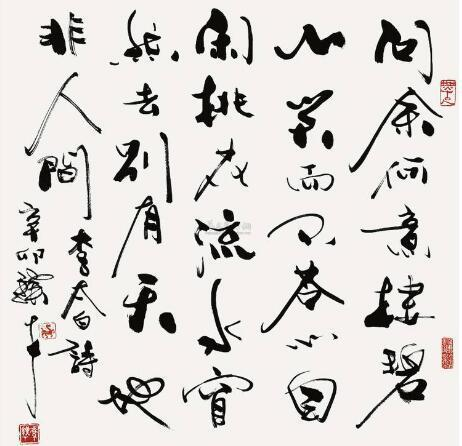 问余何意栖碧
山笑而不答心自
闲桃花流水窅
然去别有天地
非人间 李太白詩
辛卯